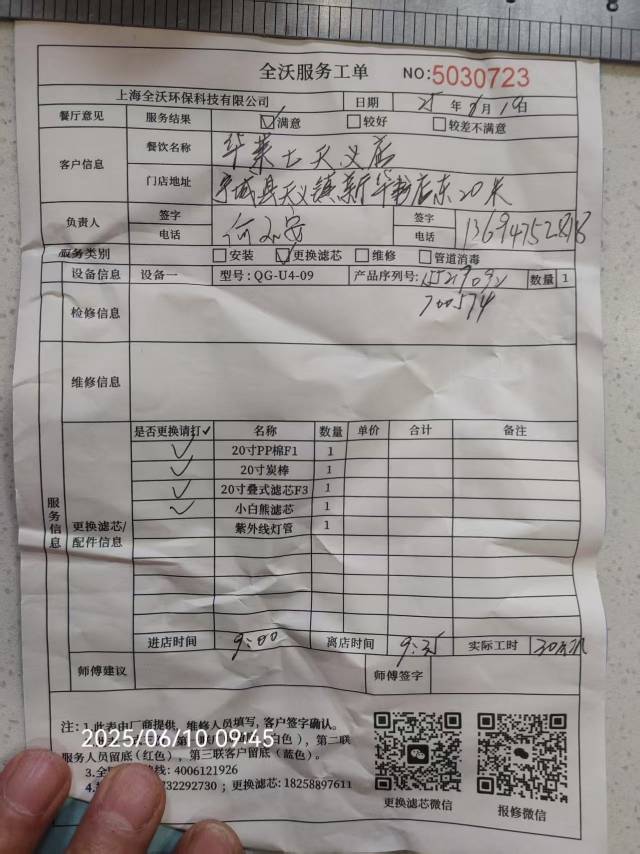 全沃服务工单 NO:5030723
上海全沃环保科技有限公司 日期 25年6月10日
餐厅意见 服务结果 ☑满意 □较好 □较差不满意
客户信息 餐饮名称 华莱士天义店
门店地址 宁城县天义镇新华书店东20米
负责人 签字 电话 签字 电话
服务类别 □安装 ☑更换滤芯 □维修 □管道消毒
设备信息 设备一 型号:QG-U4-09 产品序列号: 数量 1
700574
检修信息
维修信息
服务信息
更换滤芯/配件信息
是否更换请打✓ 名称 数量 单价 合计 备注
✓ 20寸PP棉F1 1
✓ 20寸炭棒 1
✓ 20寸叠式滤芯F3 1
✓ 小白熊滤芯 1
紫外线灯管 1
进店时间 9:00 离店时间 9:35 实际工时
师傅建议 师傅签字
注:1.此表由厂商提供,维修人员填写,客户签字确认。
白色),第二联
服务人员留底(红色),第三联客户留底(蓝色)。
3.全 线:4006121926
4. 732292730;更换滤芯:18258897611
更换滤芯微信 报修微信
2025/06/10 09:45